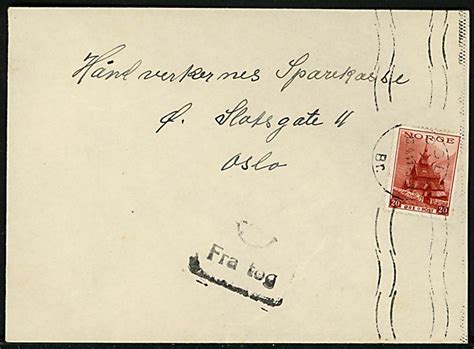 Håndverkernes Sparekasse
Ø. Slotsgate 11
Oslo
NORGE
20 20
Fra tog